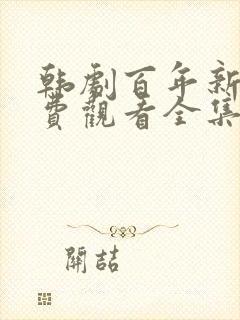 韩劇百年新
費觀看全集
開喆